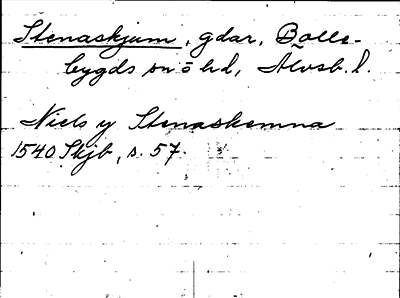 Stenaskjum, gdar, Bolle-
bygds sn ö hd, Älvsb. l.
Niels y Stenaskemna
1540 Skjb, s. 57.